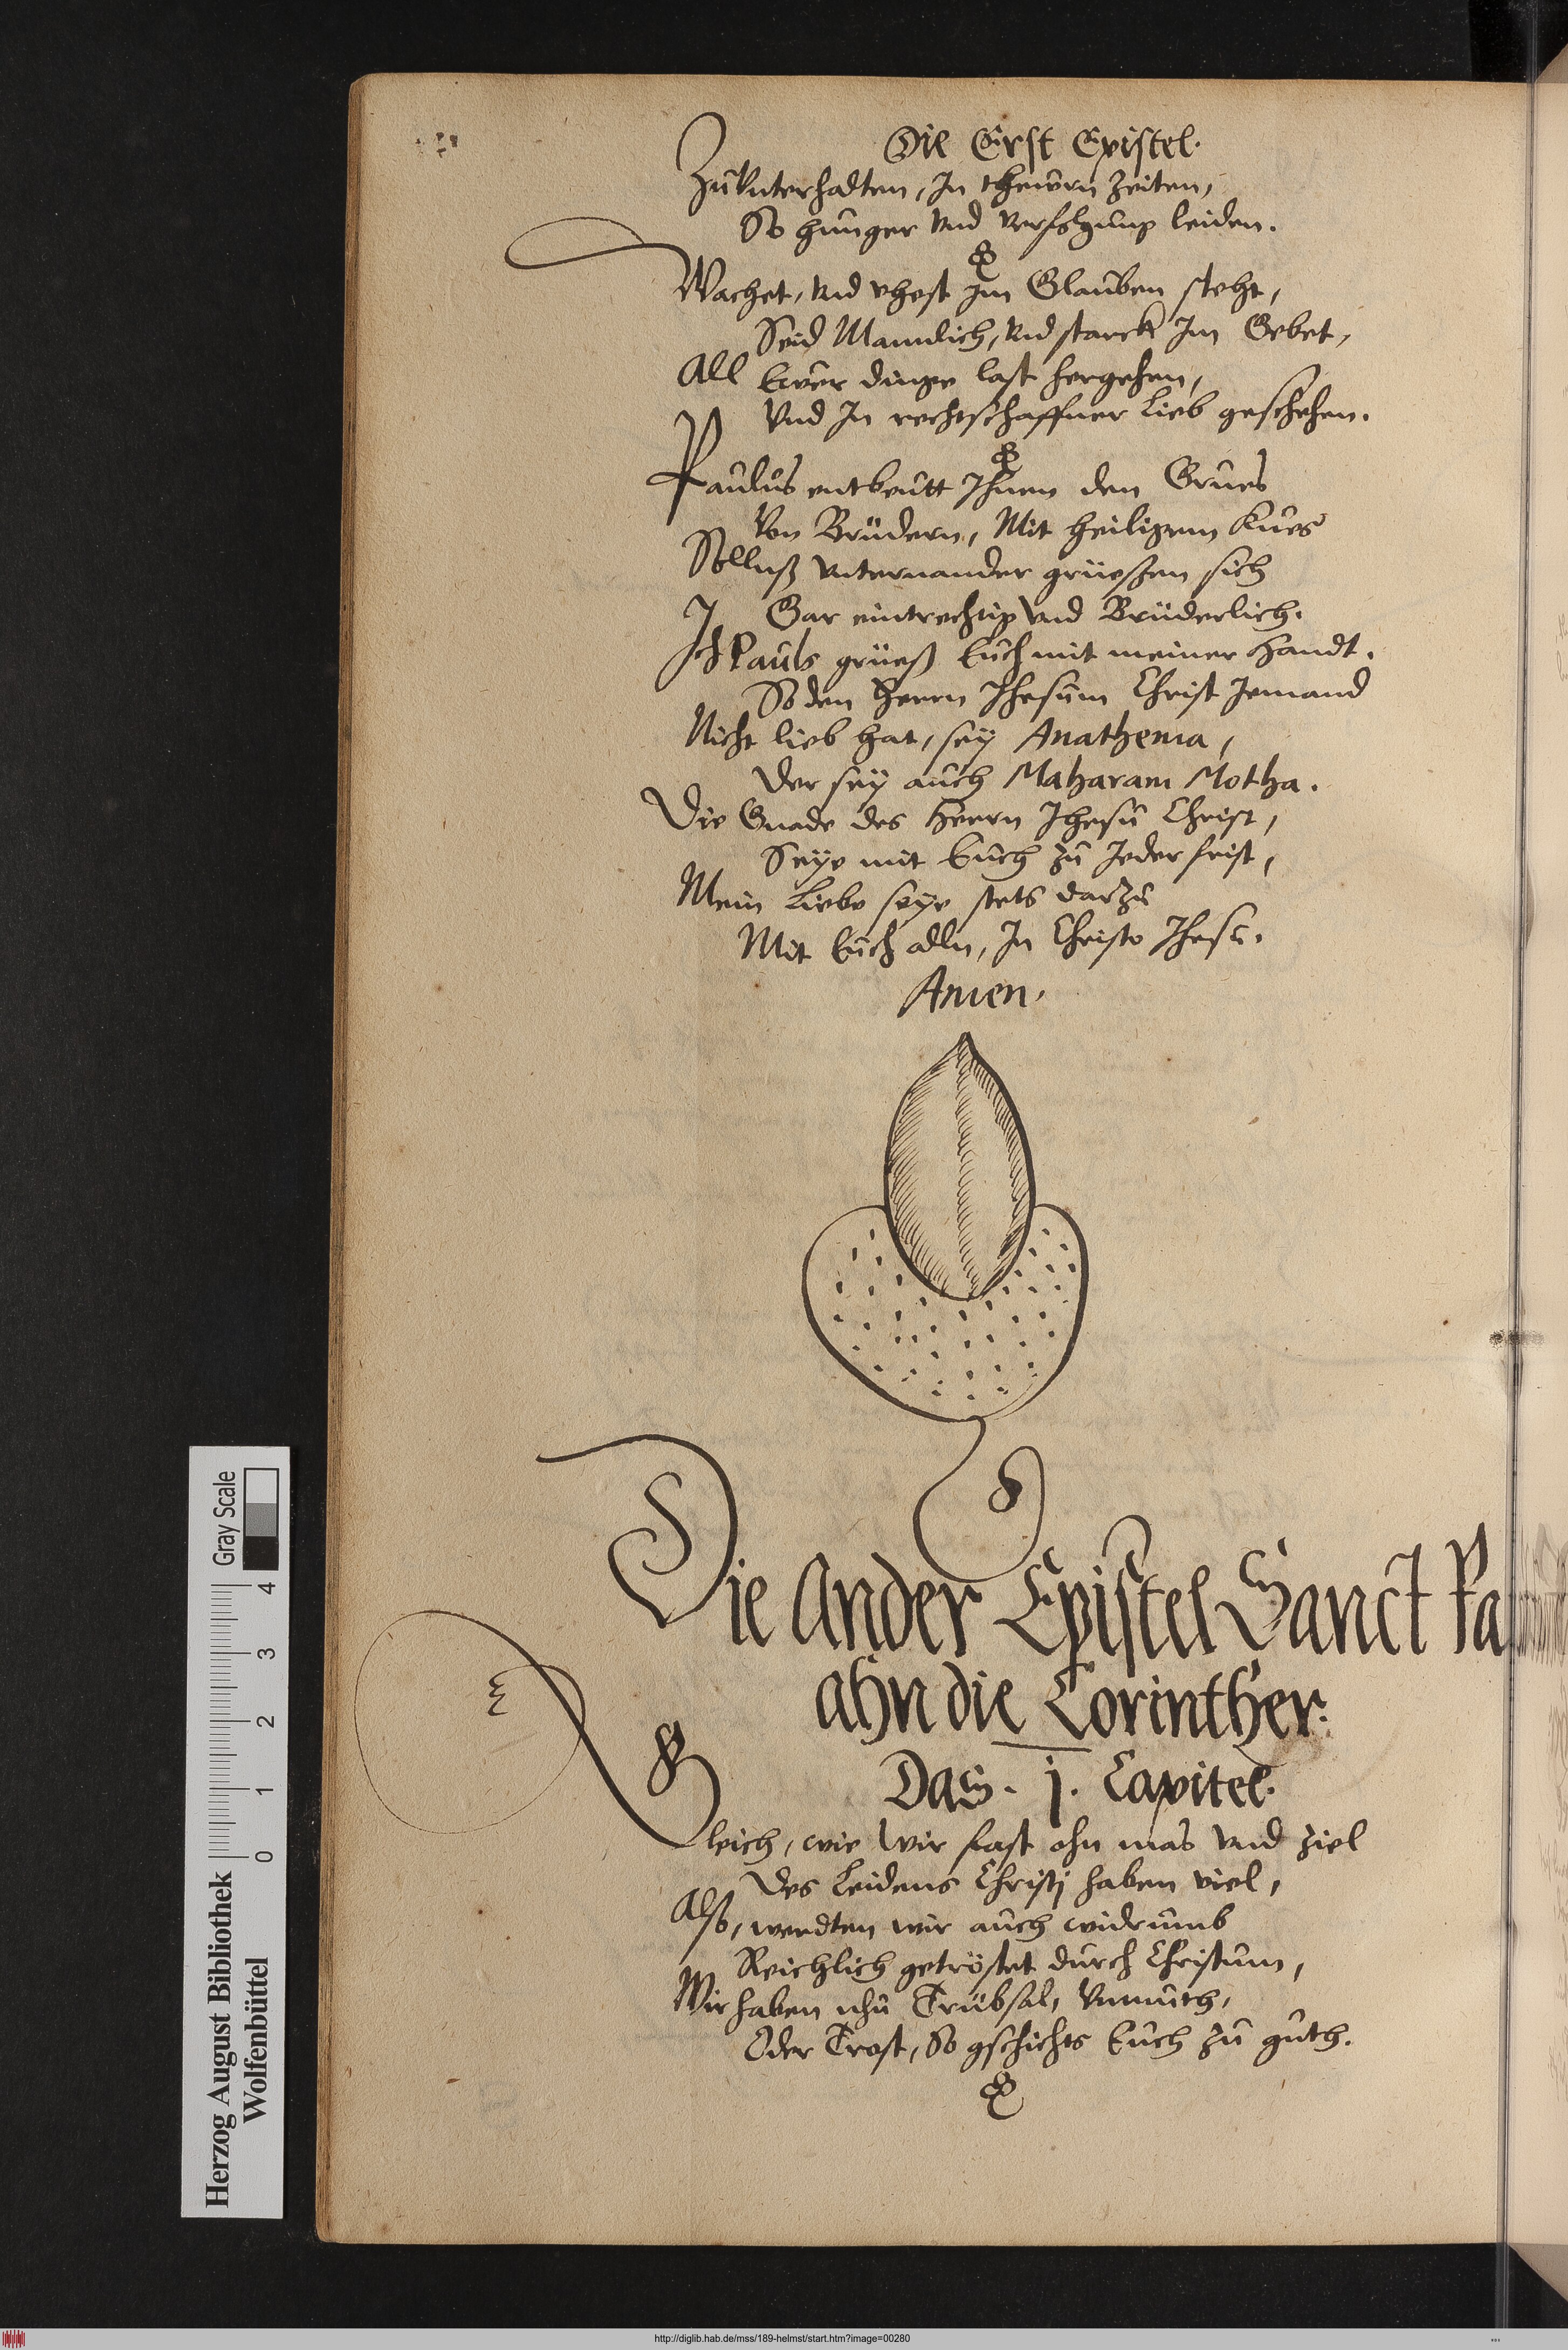 Die Erst Epistel.
Zu Vnterhalten, In thewrn Zeiten,
So hunger vnd verfolgung leiden.
Wachet, vnd vhest im Glauben steht,
Seid Mannlich, vnd starck Im Gebet,
All Ewer dinge last hergehen,
Vnd In rechtschaffner Lieb geschehen.
Paulus entbeutt Ihnen den Grues
Von Brüdern, Mit heiligem Kues
Vnternander grüeßen sich
Gar eintrechtig vnd Brüderlich.
Ich Pauls grüeß Euch mit meiner Handt.
So den Herrn Ihesum Christ Jemand
Nicht lieb hat, sey Anathema,
Der sey auch Maharam Motha.
Die Gnade des Herrn Ihesu Christ,
Seye mit Euch zu Jeder frist,
Mein Liebe seye stets darzu
Mit Euch alln, In Christo Ihesu.
Amen.
Die Ander Epistel Sanct Pa
ahn die Corinther.
Das. j. Capitel.
Gleich, wie Wir fast ohn mas vnd ziel
Des Leidens Christj haben viel,
Also, werdten wir auch widrumb
Reichlich getröstet durch Christum,
Wir haben nhu Trübsal, Vnmuth,
Oder Trost, So gschichts Euch zu guth.
Herzog August Bibliothek
Wolfenbüttel
0 1 2 3 4
Gray Scale
http://diglib.hab.de/mss/189-helmst/start.htm?image=00280